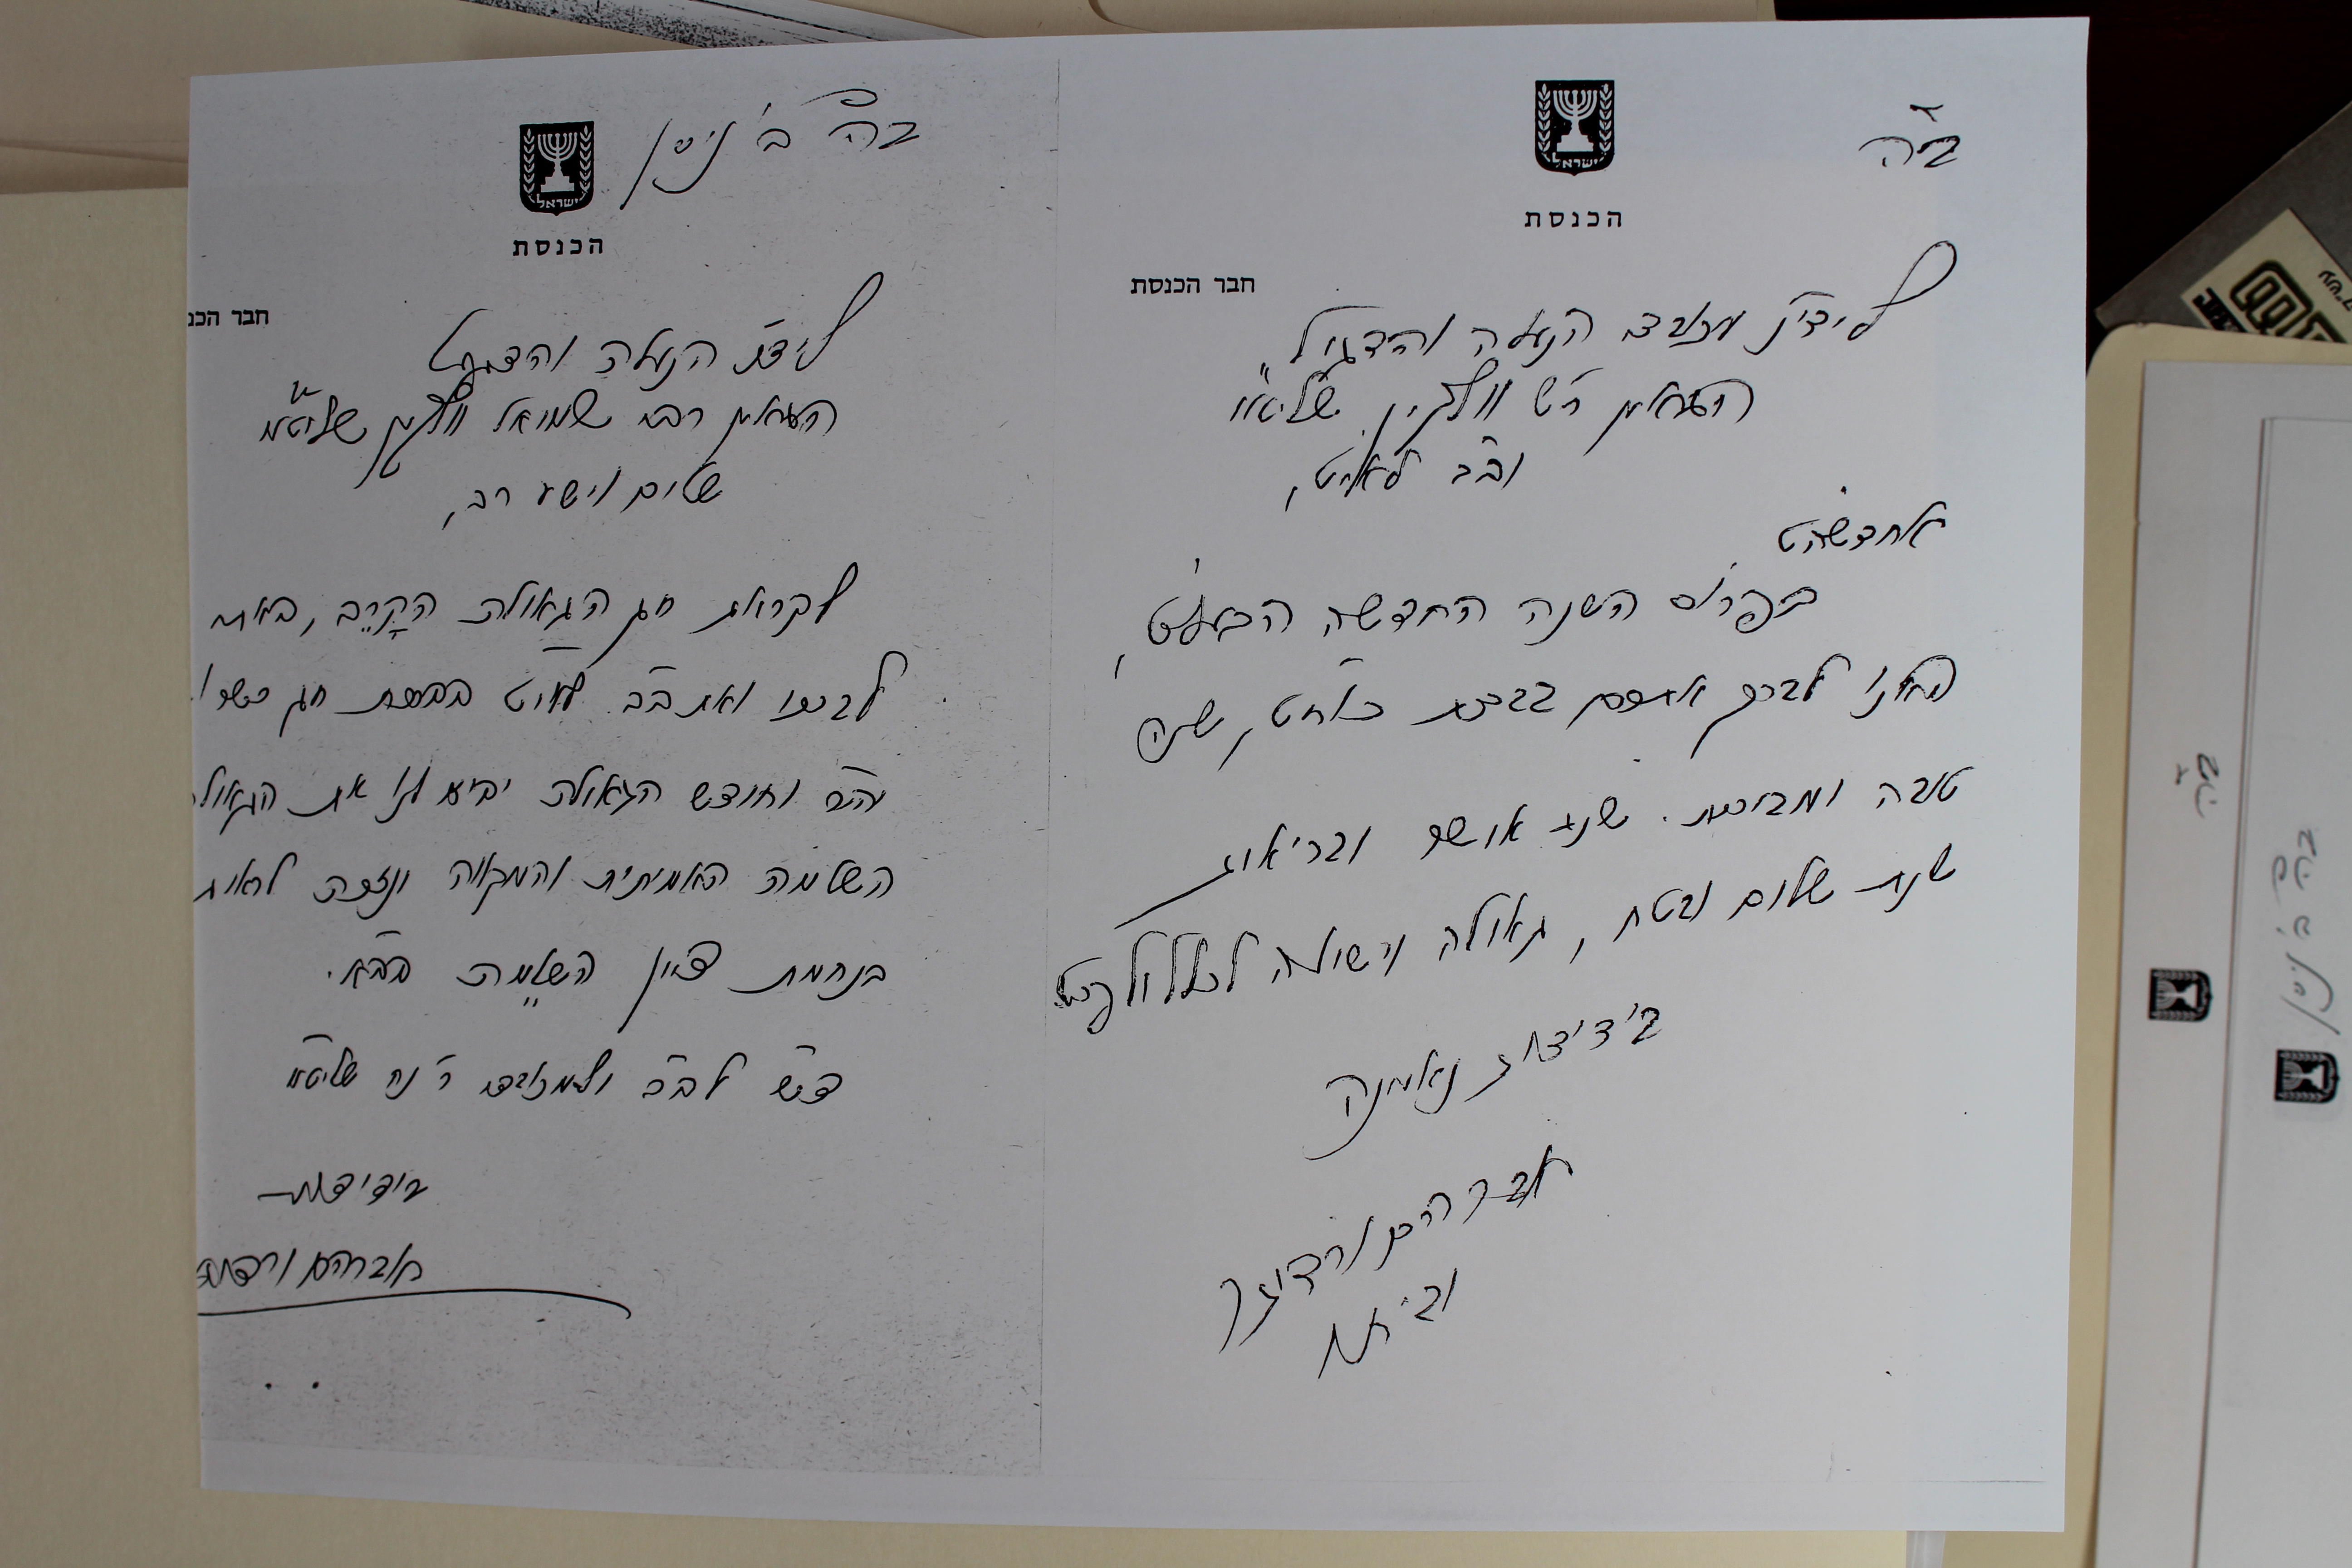 ב"ה
ישראל
הכנסת
חבר הכנסת
לידי"נ מכובד הנעלה והדגול
הגאון ר"ש וולקין שליט"א
וב"ב לאוי"ט,
אחדשה"ט
בפרוס השנה החדשה הבעל"ט,
באנו לברך אתכם בברכת כוח"ט, שנה
טובה ומבורכת. שנת אושר ובריאות
שנת שלום ובטח, גאולה וישועה לכלל ולפרט
בידידות נאמנה
אברהם ורדיגר
וביתו
ב"ה ב' ניסן
ישראל
הכנסת
חבר הכנ
לידי"נ הנעלה והדגול
הגאון רבי שמואל וולקין שליט"א
שלום וישע רב,
לקראת חג הגאולה הקרב, באתי
לברכו ואת ב"ב לאוי"ט בברכת חג כשר ו
יה"ר וחודש הגאולה יביא לנו את הגאול
השלמה האמיתית והמקווה ונזכה לראות
בנחמת ציון השלמה בב"א.
פ"ש לב"ב ולמכובד ר' נח שליט"א
בידידות
אברהם ורדיג
ב"ה
ב"ה ב' ניסן